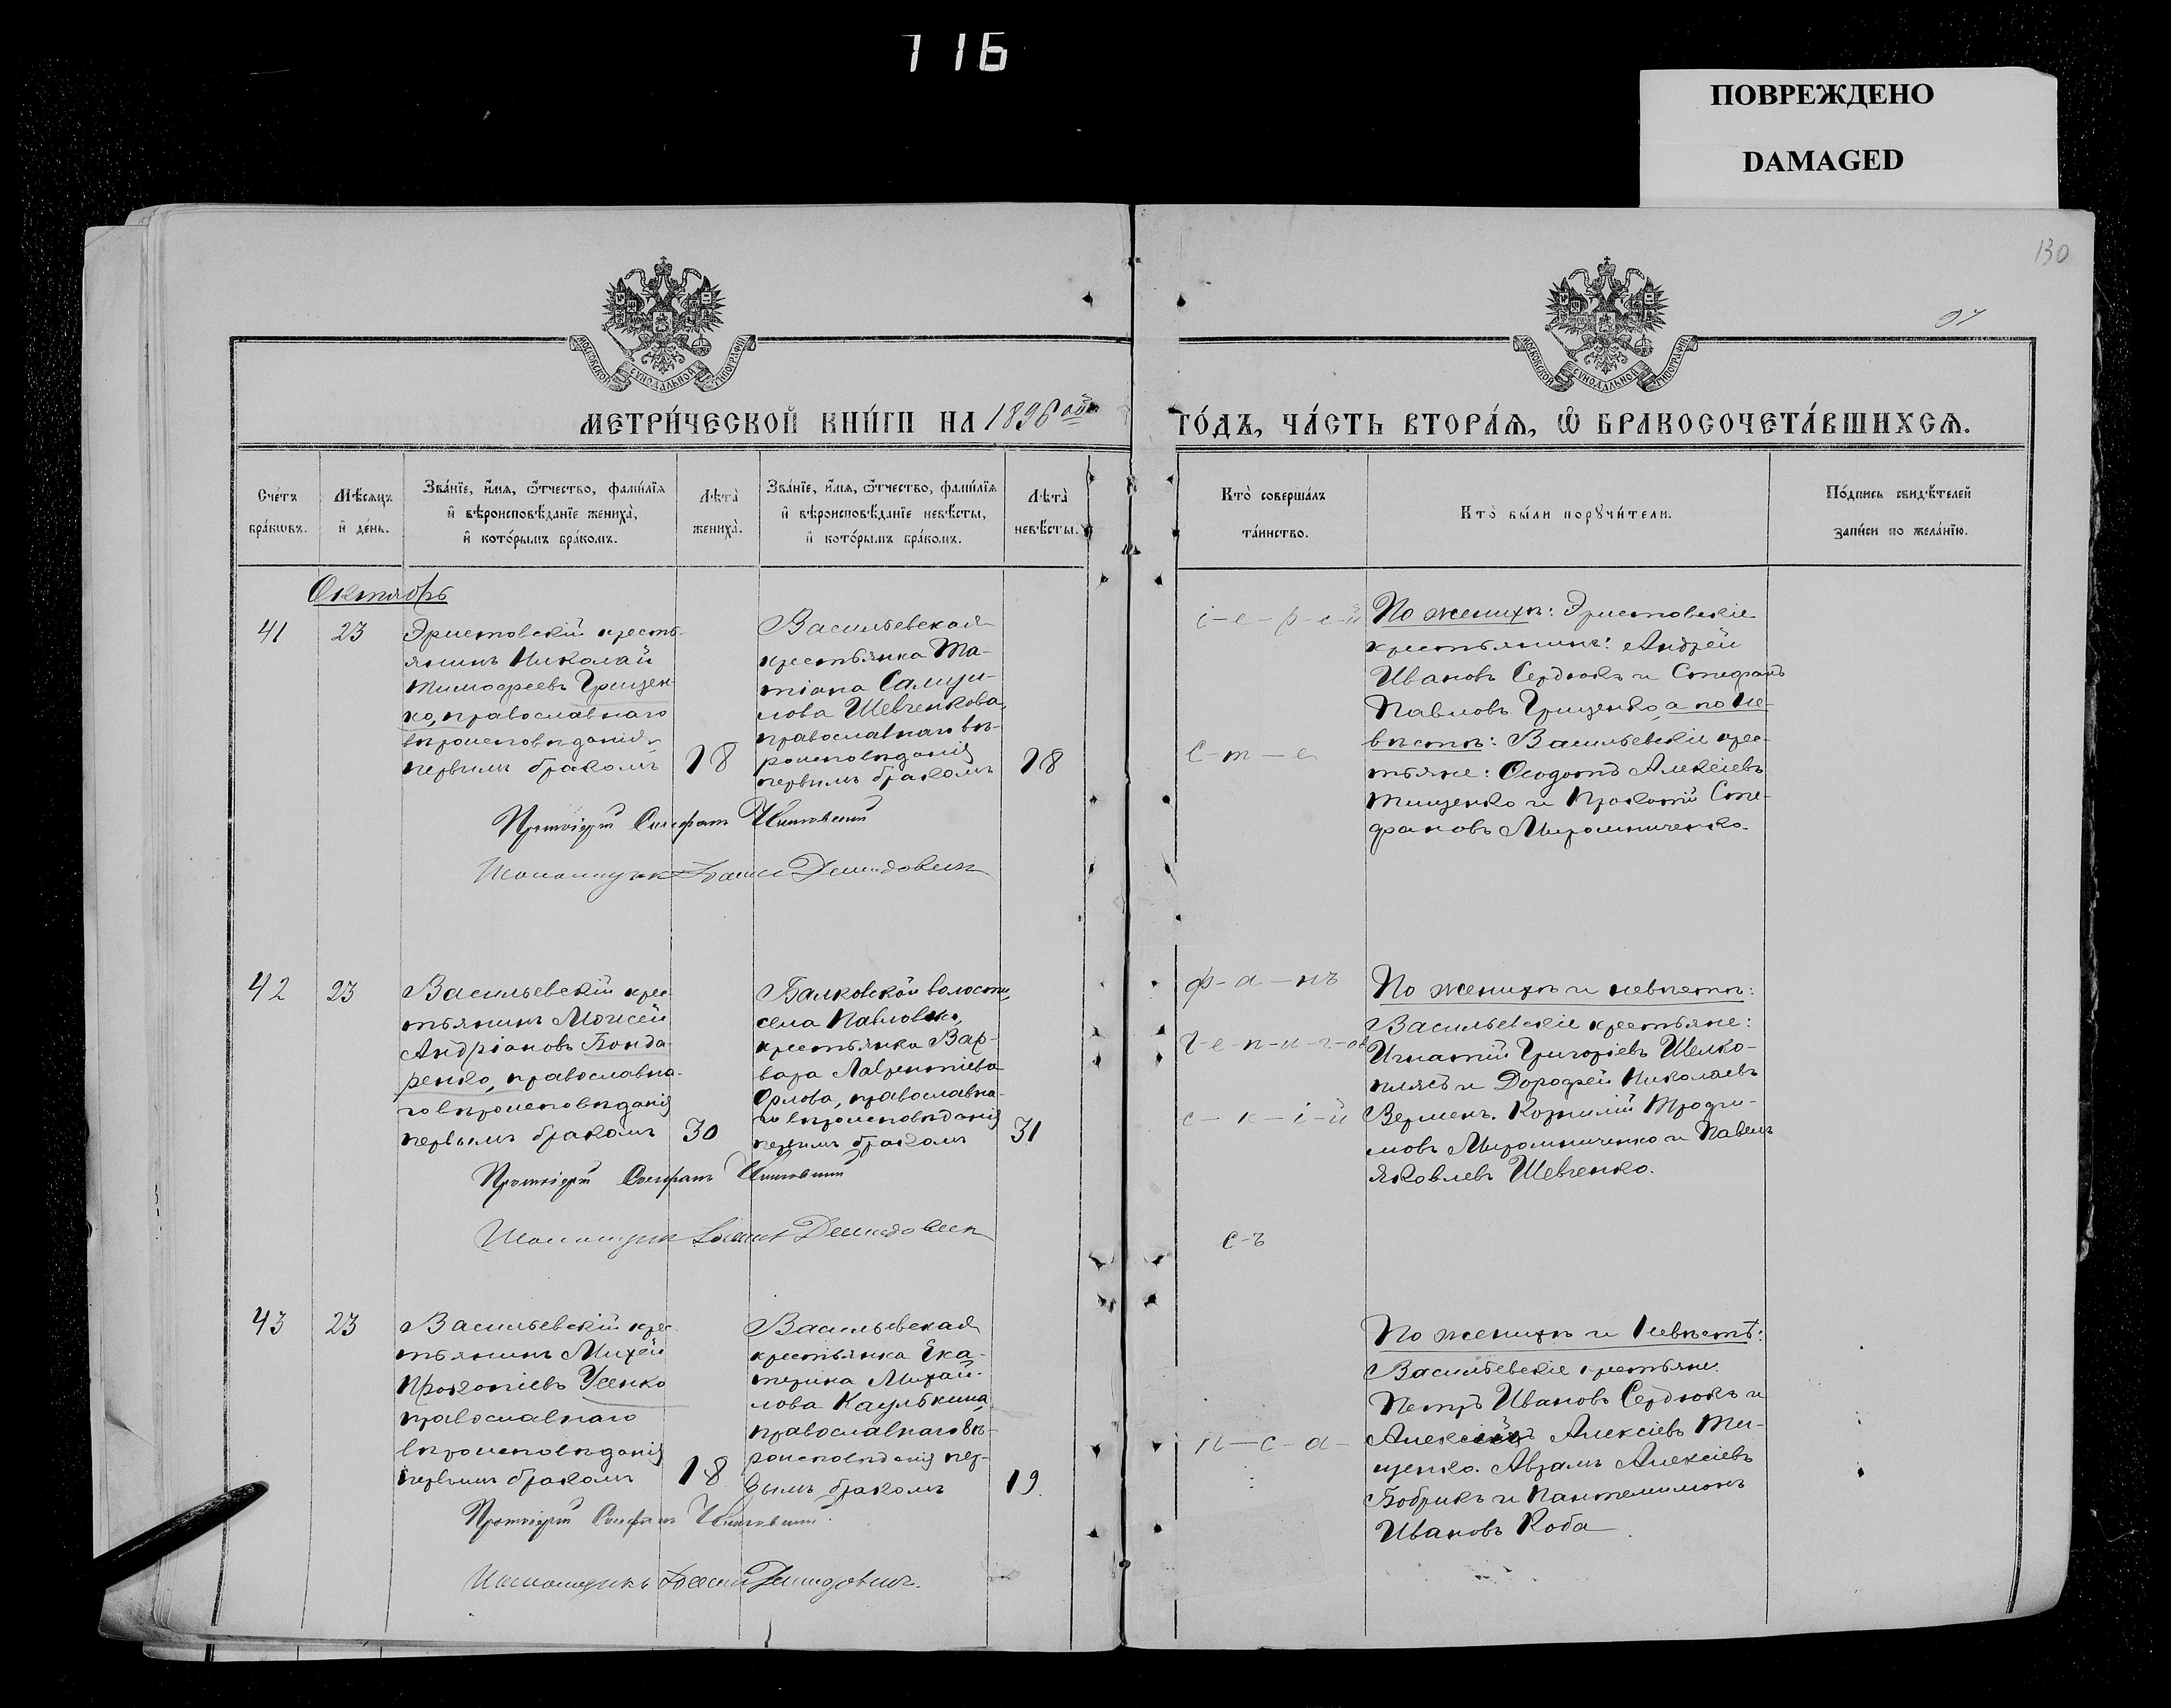 116
ПОВРЕЖДЕНО
DAMAGED
130
МОСКОВСКОЙ СѴНОДАЛЬНОЙ ТИПОГРАФІИ
МОСКОВСКОЙ СѴНОДАЛЬНОЙ ТИПОГРАФІИ
МЕТРИ́ЧЕСКОЙ КНИ́ГИ НА 1896ой
ГО́ДЪ, ЧА́СТЬ ВТОРА́Ѧ, Ѽ БРАКОСОЧЕТА́ВШИХСѦ.
Сче́тъ бра́кѡвъ.
Мѣ́сяцъ и҆ де́нь.
Зва́нїе, и҆́мя, ѻ҆́тчество, фами́лїя и҆ вѣроисповѣ́данїе жениха̀, и҆ кото́рымъ бра́комъ.
Лѣта̀ жениха̀.
Зва́нїе, и҆́мя, ѻ҆́тчество, фами́лїя и҆ вѣроисповѣ́данїе невѣ́сты, и҆ кото́рымъ бра́комъ.
Лѣта̀ невѣ́сты.
Кто̀ соверша́лъ та́инство.
Кто̀ бы́ли порꙋчи́тели.
По́дпись свидѣ́телей за́писи по жела́нїю.
Октябрь
41
23
Эристовскій кресть-
янинъ Николай
Тимофеевъ Грицен-
ко, православнаго
вѣроисповѣданія,
первымъ бракомъ
18
Васильевская
крестьянка Та-
тіана Самуи-
лова Шевченкова,
православнаго вѣ-
роисповѣданія
первымъ бракомъ
18
Протоіерей Стефанъ
і-е-р-е-й
С-т-е
По женихѣ: Эристовскіе
крестьянинъ: Андрей
Ивановъ Сердюкъ и Стефанъ
Павловъ Гриценко, а по не-
вѣстѣ: Васильевскіе крес-
тьяне: Ѳеодотъ Алексіевъ
Тищенко и Прокопій Сте-
фановъ Мирошниченко.
42
23
Васильевскій крес-
тьянинъ Моисей
Андріановъ Бонда-
ренко, православна-
го вѣроисповѣданія
первымъ бракомъ
30
Балковской волости,
села Павловки,
крестьянка Вар-
вара Лаврентіева
Орлова, православна-
го вѣроисповѣданія
первымъ бракомъ
31
Протоіерей Стефанъ
ф-а-нъ
с-к-і-й
с-ъ
По женихѣ и невѣстѣ:
Васильевскіе крестьяне:
Игнатій Григоріевъ Шелко-
плясъ и Дорофей Николаевъ
Верменъ. Корнилій Трофи-
мовъ Мирошниченко и Павелъ
Яковлевъ Шевченко.
43
23
Васильевскій крес-
тьянинъ Михей
Прокопіевъ Усенко
православнаго
вѣроисповѣданія
первымъ бракомъ
18
Васильевская
крестьянка Ека-
терина Михай-
лова Каулькина,
православнаго вѣ-
роисповѣданія пер-
вымъ бракомъ
19.
Протоіерей Стефанъ
п-с-а-
По женихѣ и невѣстѣ:
Васильевскіе крестьяне.
Петръ Ивановъ Сердюкъ и
Алексіевъ Ти-
щенко. Аврамъ Алексіевъ
Бобрикъ и Пантелимонъ
Ивановъ Коба.